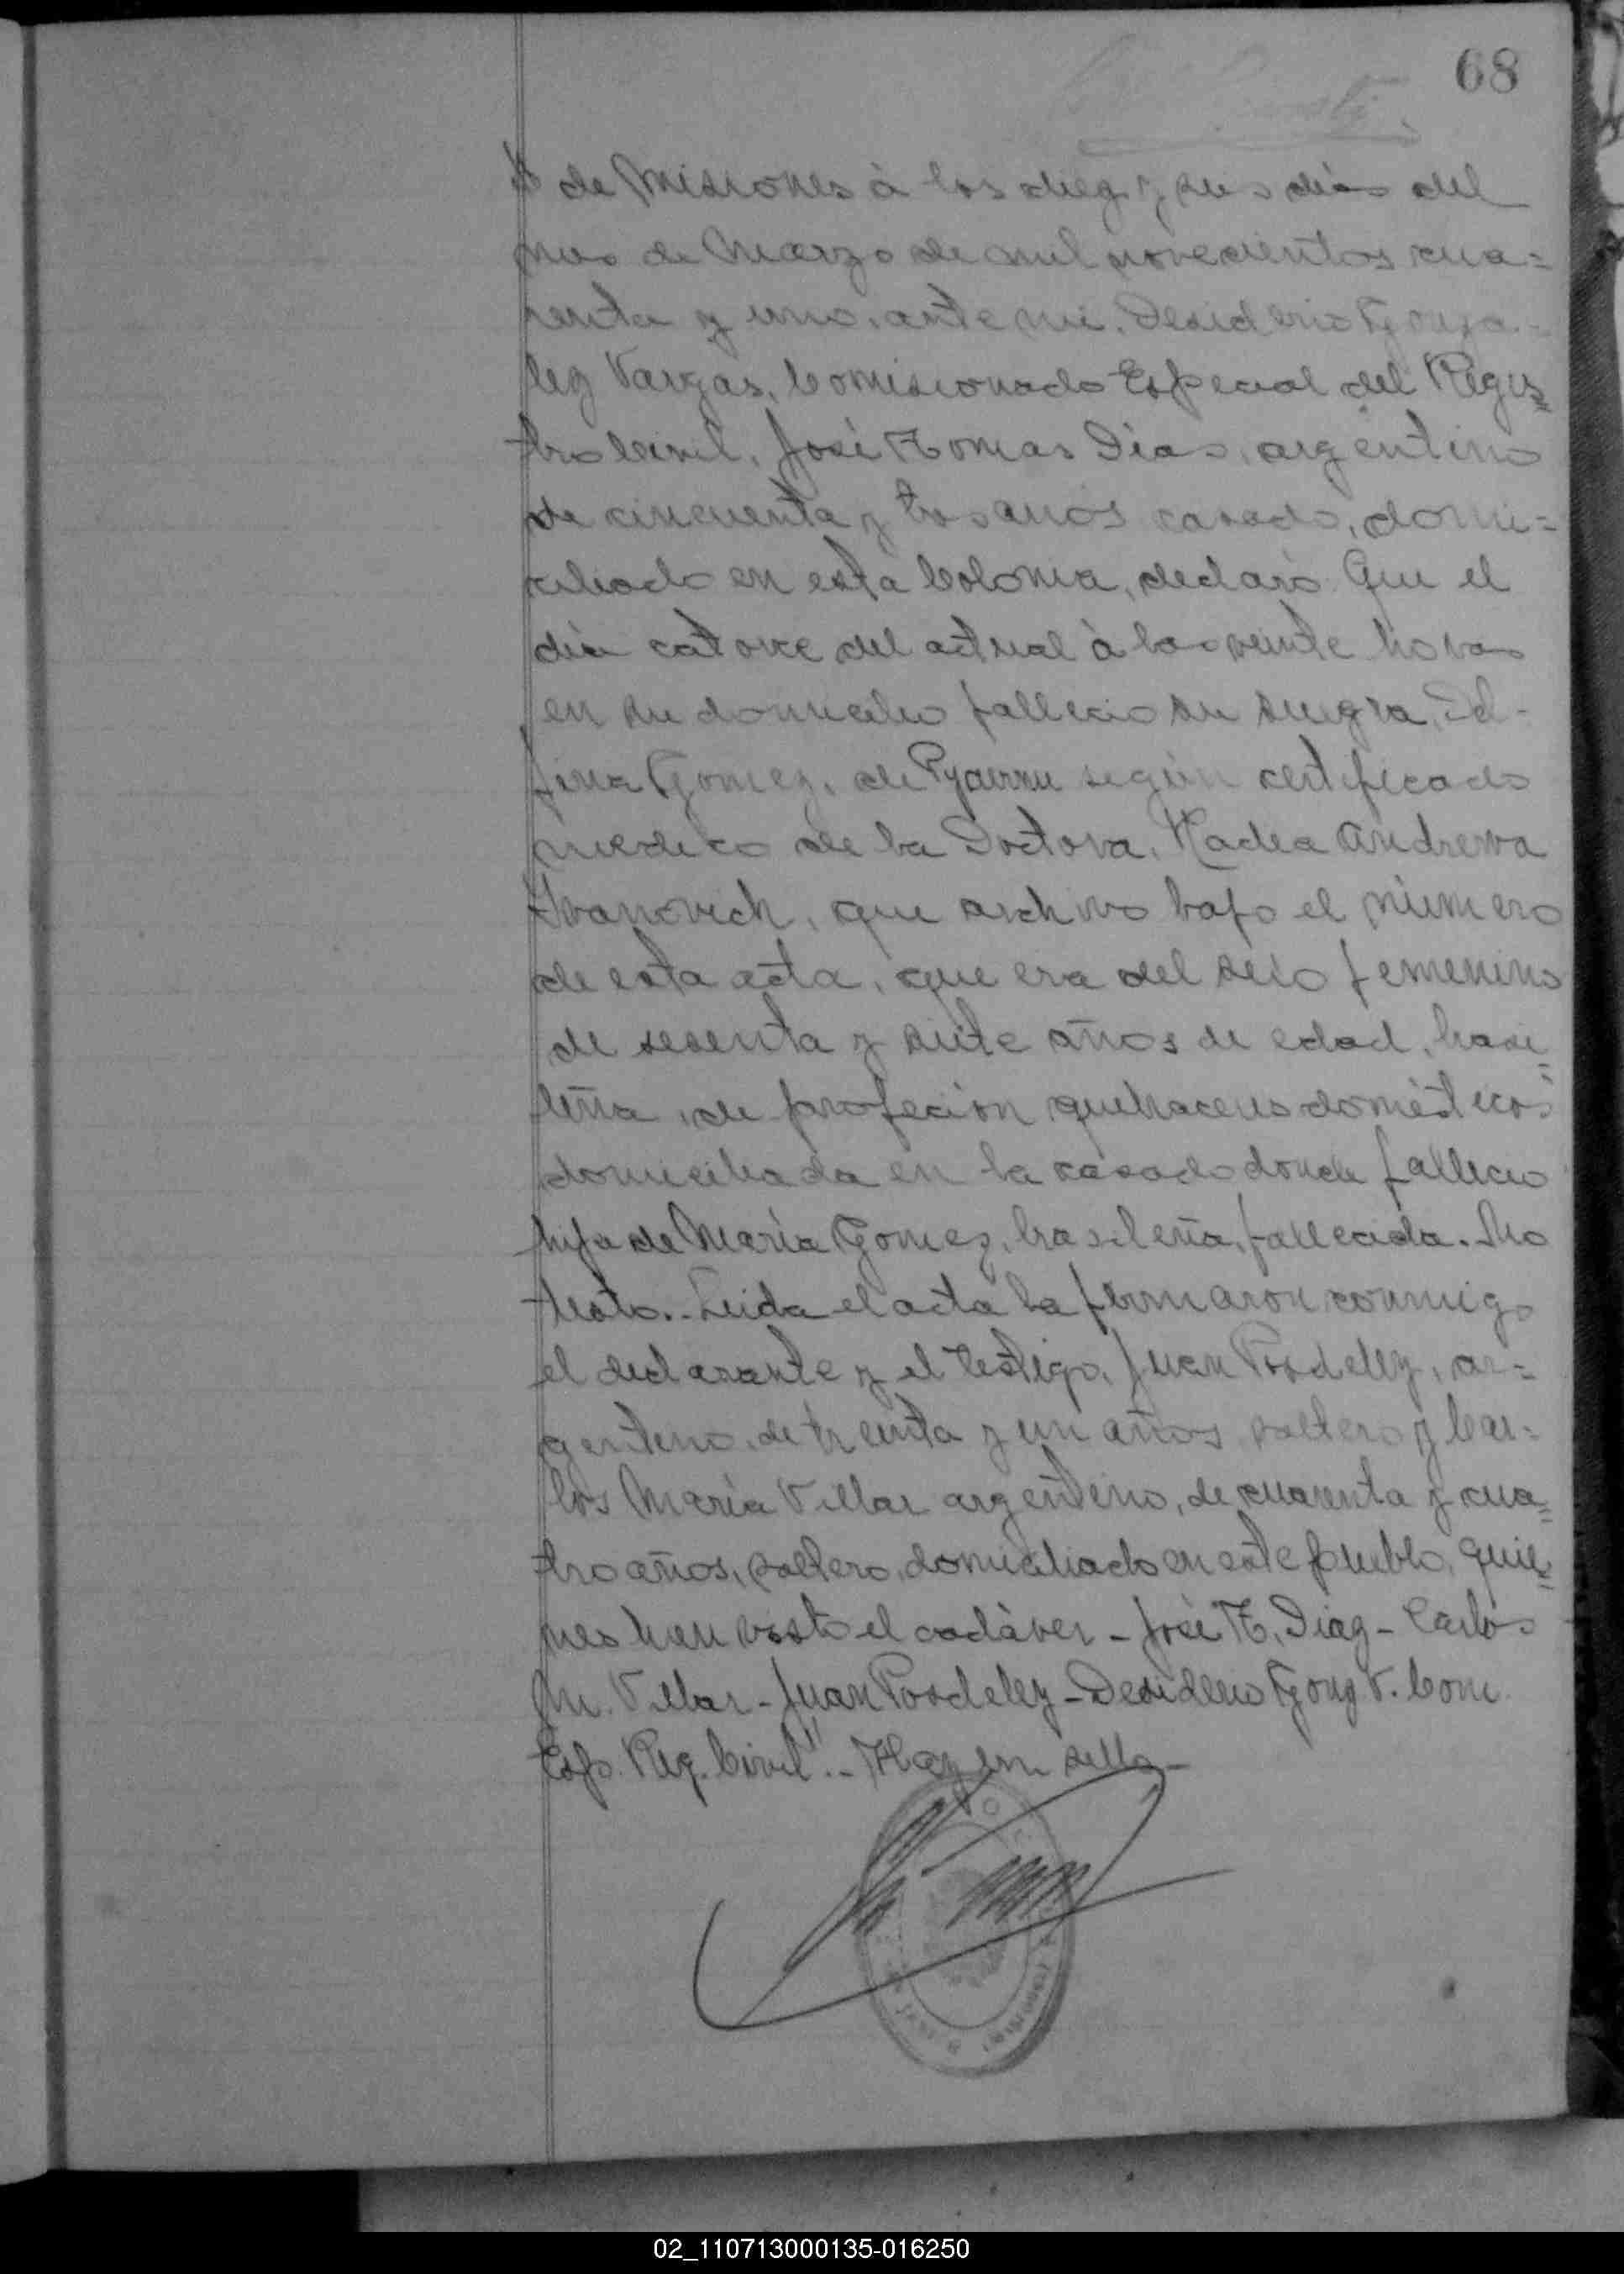 68
de Misiones à los diez y seis dias del
mes de Marzo de mil novecientos cua=
renta y uno, ante mi. Desiderio Gonza-
lez Vargas, Comisionado Especial del Regis=
tro Civil, José Tomas Dias, argentino
de cincuenta y tres anos casado, domi=
ciliado en esta Colonia, declaro Que el
dia catorce del actual à las veinte horas
en su domicilio fallecio su suegra, Del-
fina Gomez, de según certificado
medico de la Doctora, Nadea Andrewa
Ivanovich, que archivo bajo el nùmero
de esta acta, que era del sexo femenino
de sesenta y siete años de edad, brasi=
leña, de profecion quehaceres domésticos
domiciliada en la casa donde fallecio
hija de María Gomez, brasileña, fallecida. No
testo.- Leida el acta la firmaron conmigo
el declarante y el testigo, Juan Posdeley, ar=
gentino, de treinta y un años, soltero y Car=
los María Villar argentino, de cuarenta y cua=
tro años, soltero, domiciliado en este pueblo, quie=
nes han visto el cadàver - José T. Diaz - Carlos
M. Villar - Juan Posdeley - Desiderio Gonz V. Com.
Esp. Reg. Civil".- Hay un sello -
02_110713000135-016250